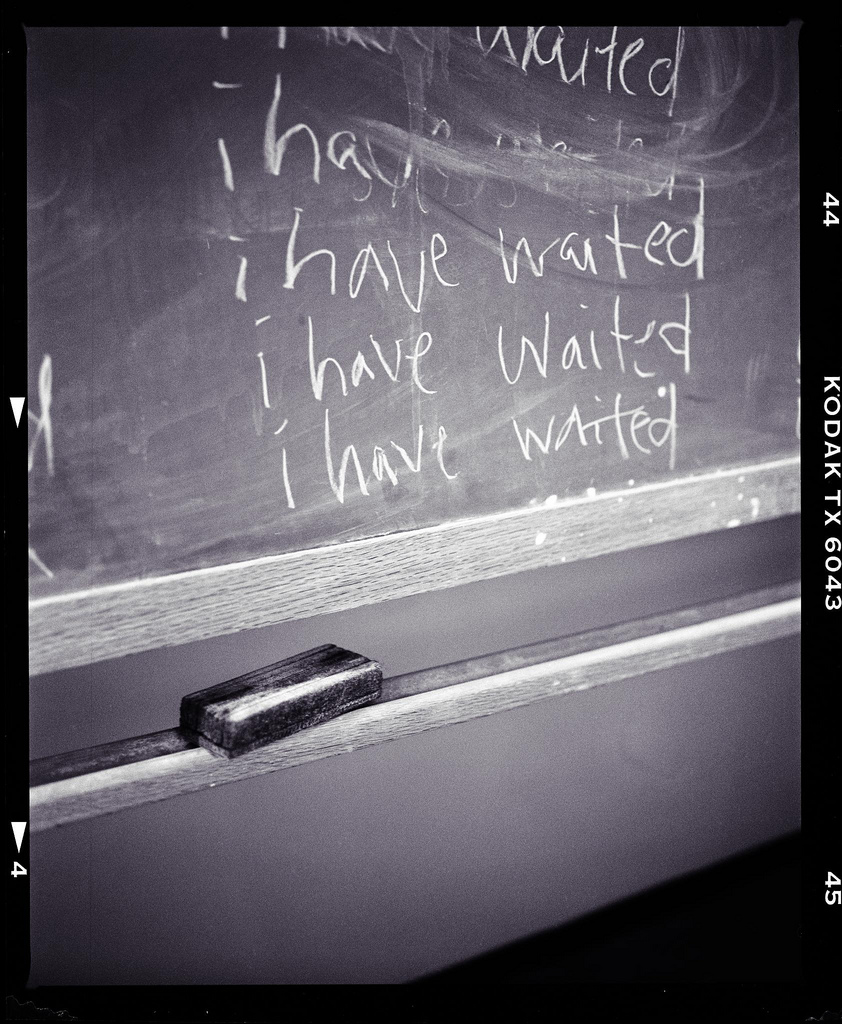 waited
i have
i have waited
i have waited
i have waited
44
KODAK TX 6043
45
4